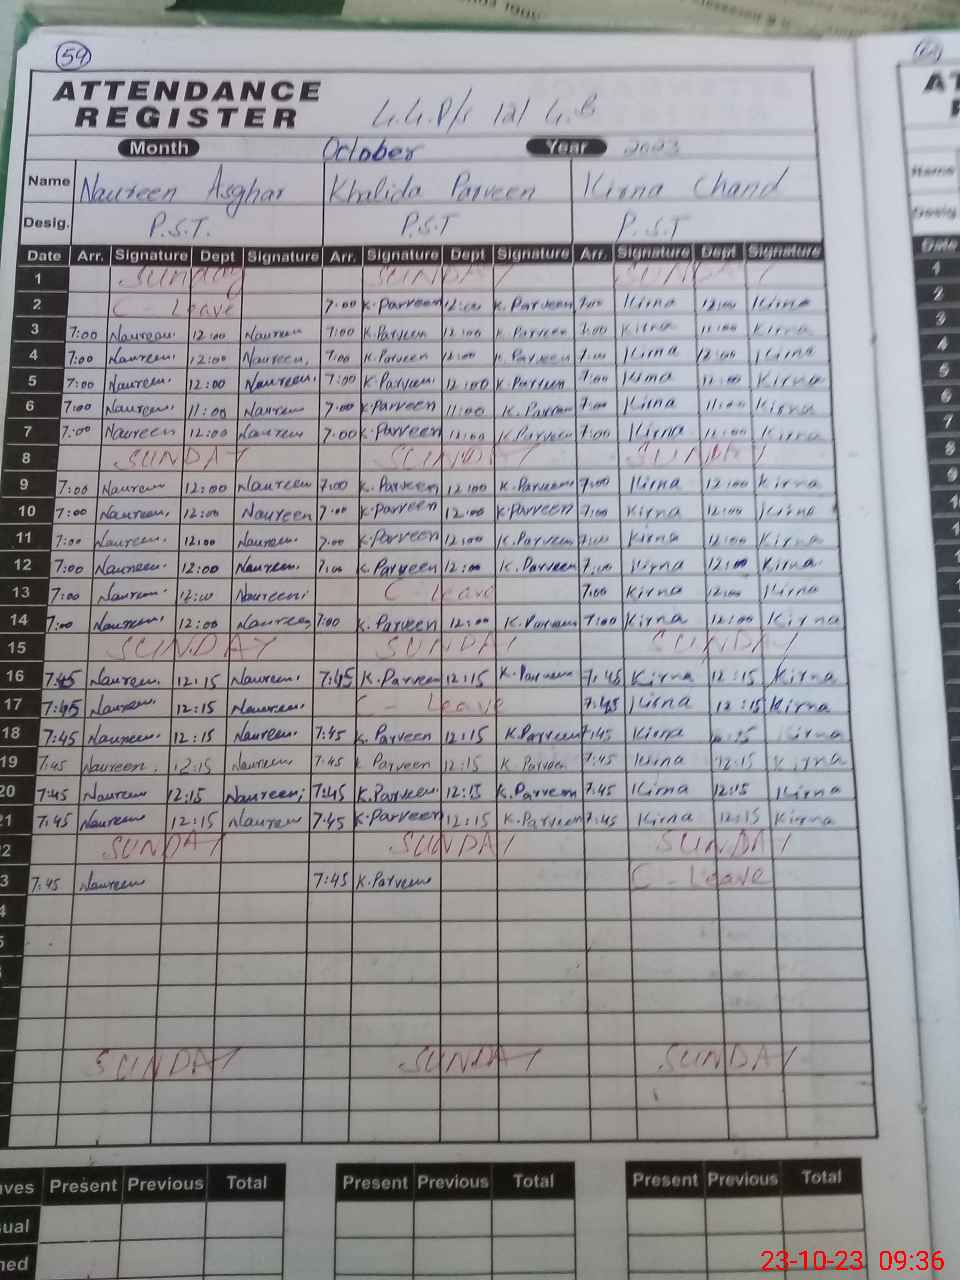 59
ATTENDANCE
REGISTER G.G.P/S 121 G.B
Month October Year 2023
Name Naureen Asghar Khalida Parveen Kirna Chand
Desig. P.S.T. P.S.T P.S.T
Date Arr. Signature Dept Signature Arr. Signature Dept Signature Arr. Signature Dept Signature
1 Sunday SUNDAY SUNDAY
2 C - Leave 7:00 K.Parveen 12:00 K.Parveen 7:00 Kirna 12:00 Kirna
3 7:00 Naureen. 12:00 Naureen 7:00 K.Parveen 12:00 K.Parveen 7:00 Kirna 11:00 Kirna
4 7:00 Naureen. 12:00 Naureen. 7:00 K.Parveen 12:00 K.Parveen 7:00 Kirna 12:00 Kirna
5 7:00 Naureen. 12:00 Naureen. 7:00 K.Parveen 12:00 K.Parveen 7:00 Kirna 12:00 Kirna
6 7:00 Naureen. 11:00 Naureen 7:00 K.Parveen 11:00 K.Parveen 7:00 Kirna 11:00 Kirna
7 7:00 Naureen 12:00 Naureen 7:00 K.Parveen 12:00 K.Parveen 7:00 Kirna 12:00 Kirna
8 SUNDAY SUNDAY SUNDAY
9 7:00 Naureen 12:00 Naureen 7:00 K.Parveen 12:00 K.Parveen 7:00 Kirna 12:00 Kirna
10 7:00 Naureen. 12:00 Naureen 7:00 K.Parveen 12:00 K.Parveen 7:00 Kirna 12:00 Kirna
11 7:00 Naureen. 12:00 Naureen. 7:00 K.Parveen 12:00 K.Parveen 7:00 Kirna 12:00 Kirna
12 7:00 Naureen. 12:00 Naureen. 7:00 K.Parveen 12:00 K.Parveen 7:00 Kirna 12:00 Kirna
13 7:00 Naureen. 12:00 Naureen. C - Leave 7:00 Kirna 12:00 Kirna
14 7:00 Naureen. 12:00 Naureen 7:00 K.Parveen 12:00 K.Parveen 7:00 Kirna 12:00 Kirna
15 SUNDAY SUNDAY SUNDAY
16 7:45 Naureen. 12:15 Naureen. 7:45 K.Parveen 12:15 K.Parveen 7:45 Kirna 12:15 Kirna
17 7:45 Naureen. 12:15 Naureen. C - Leave 7:45 Kirna 12:15 Kirna
18 7:45 Naureen. 12:15 Naureen. 7:45 K.Parveen 12:15 K.Parveen 7:45 Kirna 12:15 Kirna
19 7:45 Naureen. 12:15 Naureen 7:45 K.Parveen 12:15 K.Parveen 7:45 Kirna 12:15 Kirna
20 7:45 Naureen 12:15 Naureen; 7:45 K.Parveen. 12:15 K.Parveen 7:45 Kirna 12:15 Kirna
21 7:45 Naureen 12:15 Naureen 7:45 K.Parveen 12:15 K.Parveen 7:45 Kirna 12:15 Kirna
2 SUNDAY SUNDAY SUNDAY
3 7:45 Naureen 7:45 K.Parveen C - Leave
4
5
SUNDAY SUNDAY SUNDAY
ves Present Previous Total Present Previous Total Present Previous Total
ual
ned
23-10-23 09:36